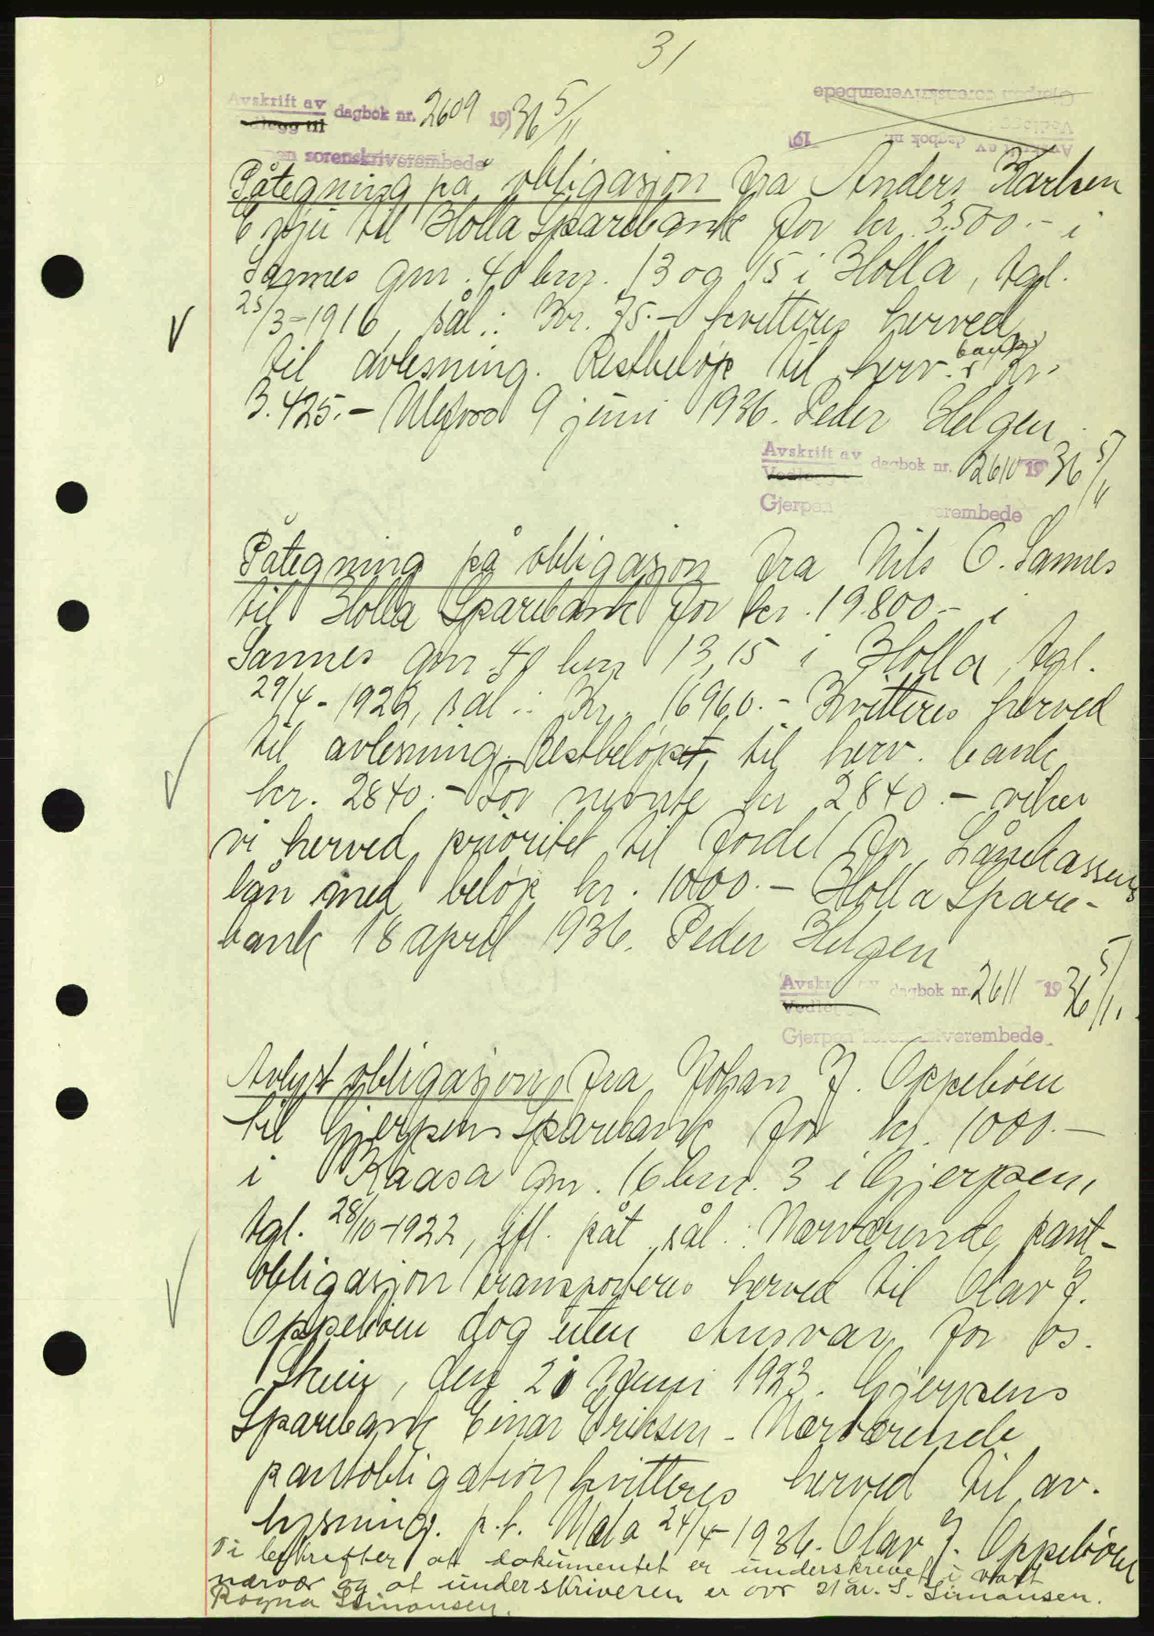 31
Avskrift av dagbok nr. 2609 1936 5/11
sorenskriverembede
Påtegning på obligasjon fra Anders Karlsen
til Holla Sparebank for kr. 3.500.- i
Sannes gnr. 40 bnr. 13 og 15 i Holla, tgl.
25/3-1916, sål.: Kr. 75.- kvitteres herved
til avlesning. Restbeløp til herv. bank er Kr.
3.425.- Ulefoss 9 juni 1936. Peder Helgen.
Avskrift av dagbok nr. 2610 1936 5/11
Gjerpen verembede
Påtegning på obligasjon fra Nils O. Sannes
til Holla Sparebank for kr. 19.800.- i
Sannes gnr. 40 bnr 13,15 i Holla, tgl.
29/4-1922, sål.: Kr. 16960.- Kvitteres herved
til avlesning. Restbeløpet til herv. bank
kr. 2840.- For nevnte kr 2840.- viker
vi herved prioritet til fordel for Lånekassens
lån med beløp kr. 1000.- Holla Spare-
bank 18 april 1936. Peder Helgen
Avskrift av dagbok nr. 2611 1936 5/11.
Gjerpen sorenskriverembede
Avlyst obligasjon fra Johan J. Oppebøen
til Gjerpens Sparebank for kr. 1000.-
i Kaasa gnr. 16 bnr. 3 i Gjerpen,
tgl. 28/10-1922, jfl. påt. sål.: Nærværende pant-
obligasjon transporteres herved til Olav J.
Oppebøen dog uten Ansvar for os.
Skien, den 21 Juni 1923. Gjerpens
Sparebank Einar Eriksen - Nærværende
pantobligation kvitteres herved til av-
lysning. p.t. Mæla 24/4-1936. Olav J. Oppebøen
Vi bekrefter at dokumentet er underskrevet i vårt
nærvær og at underskriveren er over 21 år. S. Simonsen.
Ragna Simonsen.